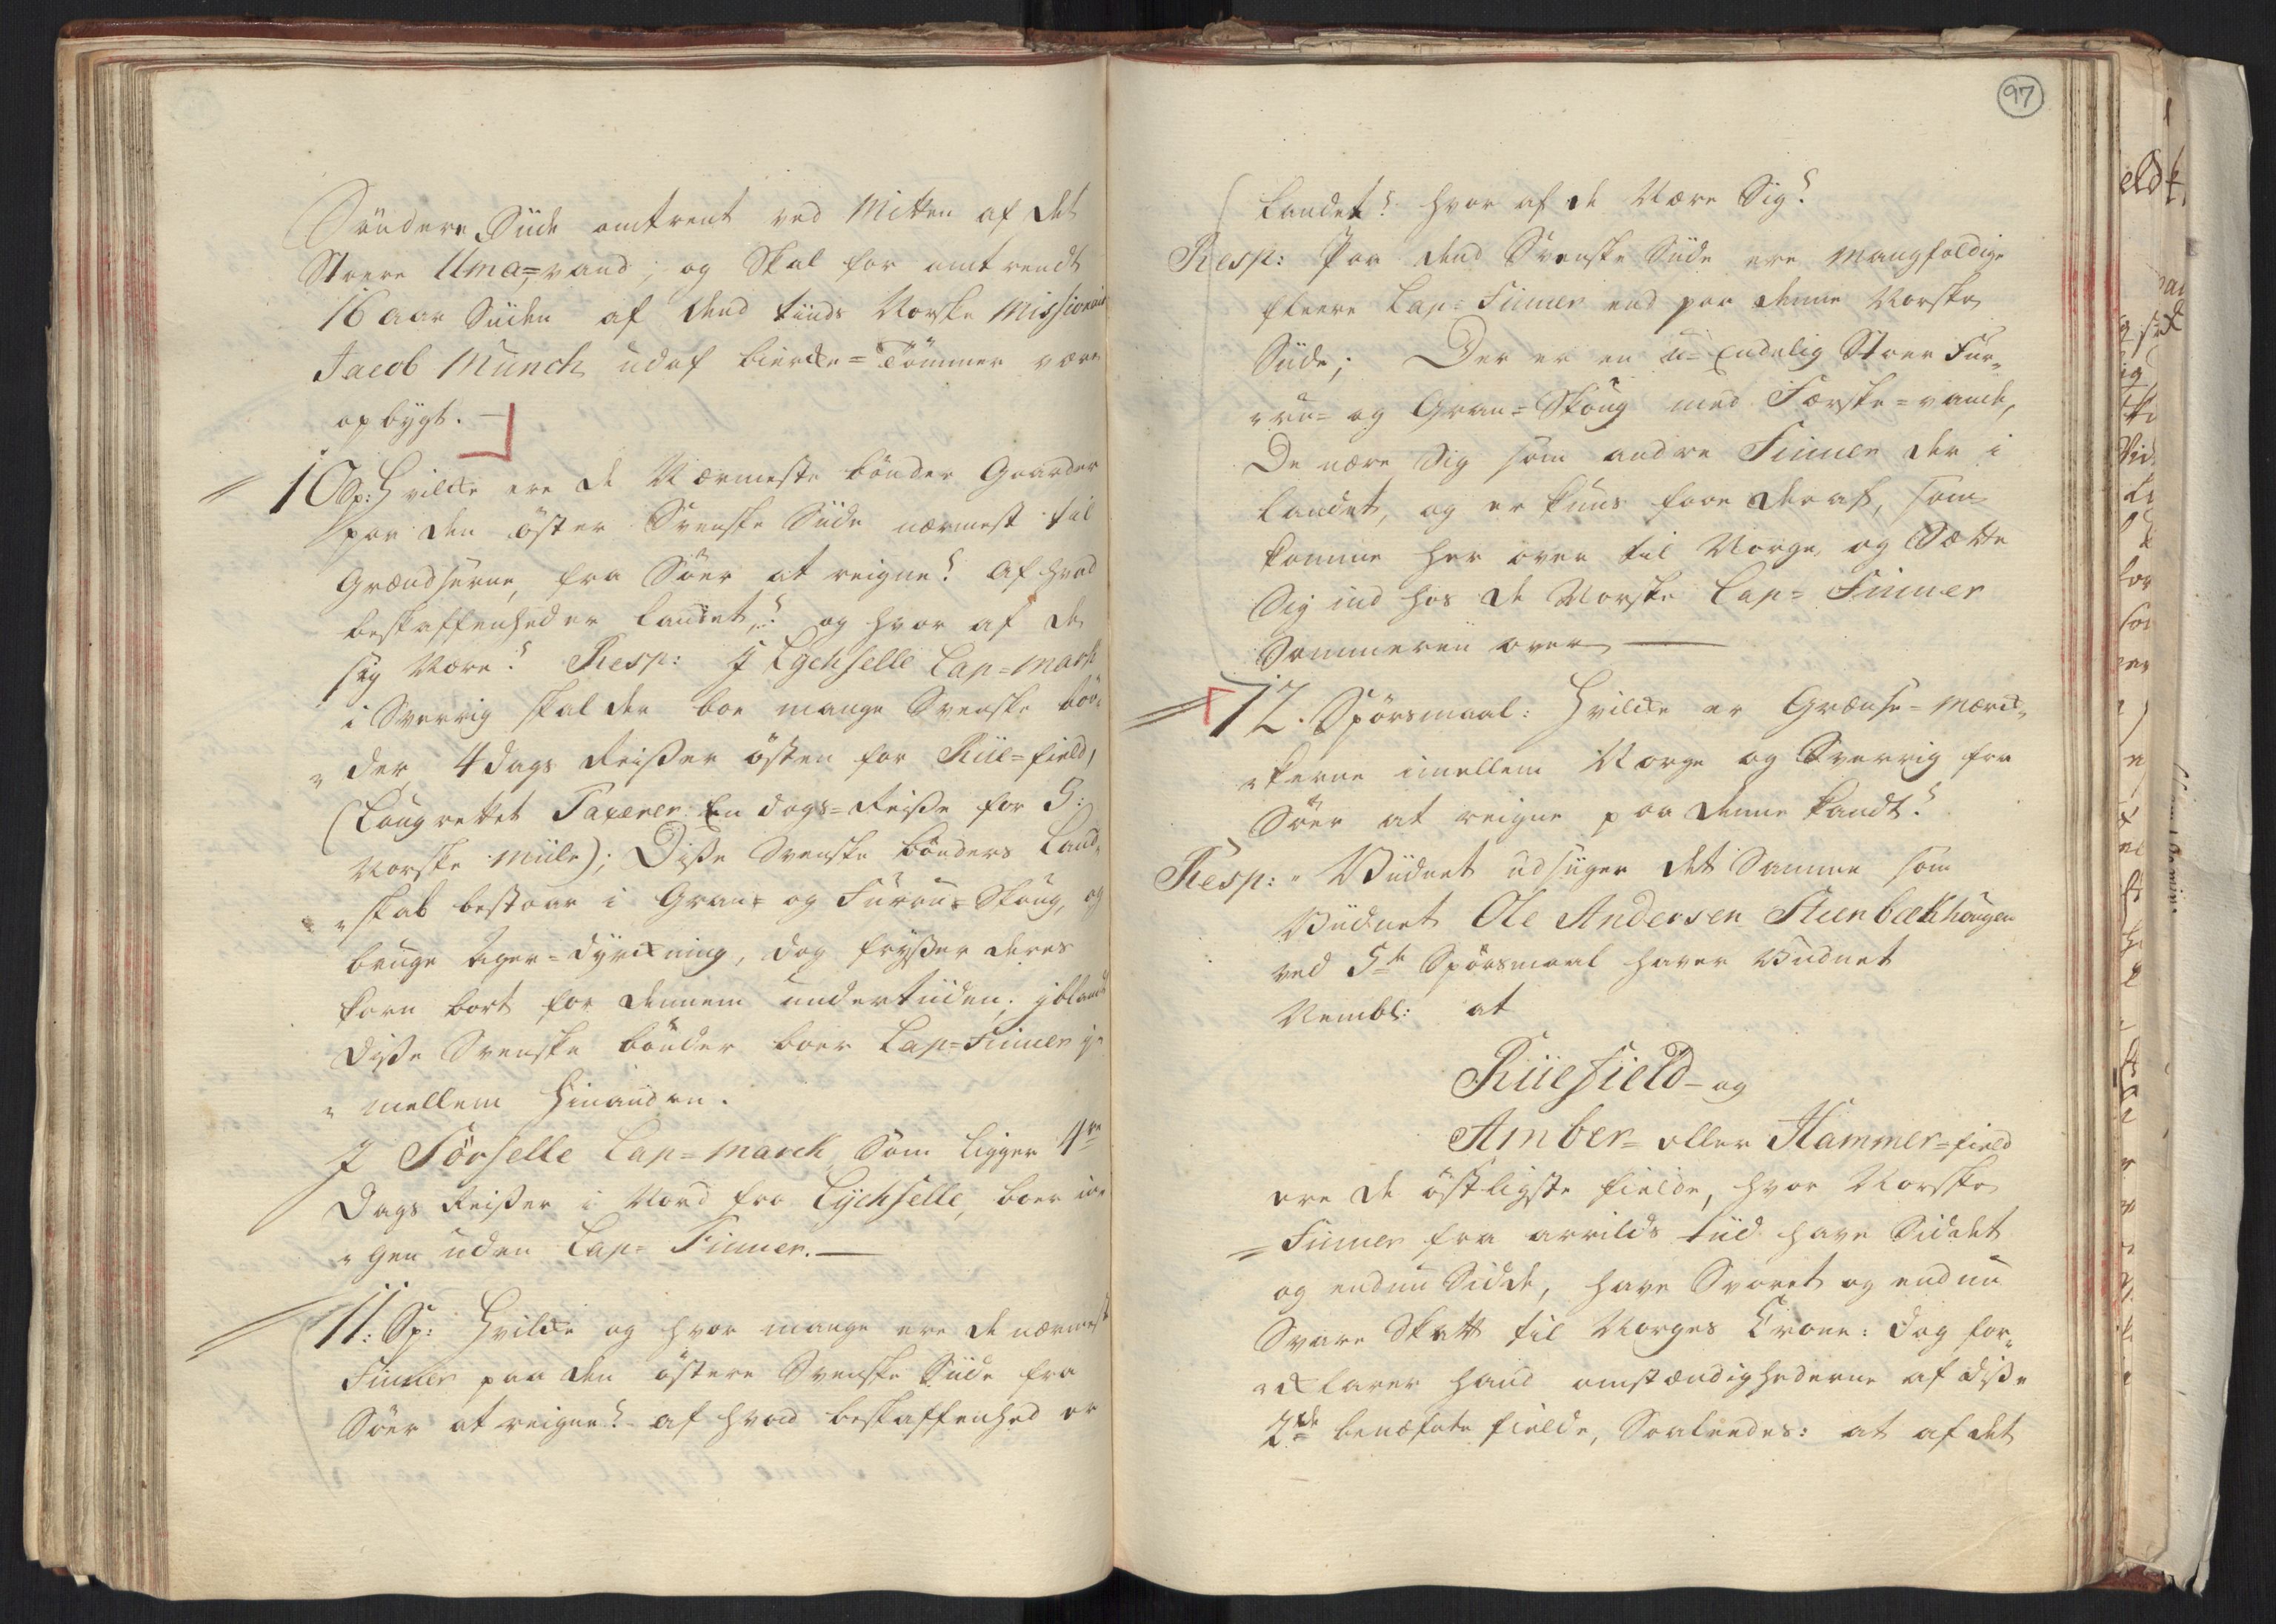 Söndere Siide omtrent ved Mitten af det
Store Uma=vand; og Skal for omtrendt
16 aar Siiden af dend tiids Norske Missionair
Jacob Münch udaf bierke=Tömmer være
opbÿgt. —
10 Sp: Hvilcke ere de Nærmeste bönder Gaarder
paa den öster Svenske Siide nærmest til
Grændserne, fra Söer at reigne? af hvad
beskaffenhed er landet,? og hvor af de
sig Nære? Resp: I Lychselle Lap=mark
i Sverrig skal der boe mange Svenske bön„
„der, 4 dags Reißer östen for Riie=field,
(Laugrettet Taxerer En dags=Reiße for 5:
Norske Miile); Diße Svenske bönders Land„
„skab bestaar i Gran= og Furru=Skoug, og
bruge Ager=dÿrckning, dog frÿßer deres
korn bort for dennem undertiiden; iblandt
diße Svenske bönder boer Lap=Finner i„
„mellem hinanden.
I Sörselle Lap=marck, Som ligger 4re
Dags Reißer i Nord fra Lÿchselle, boer in„
„gen uden Lap=Finner. —
11: Sp: Hvilcke og hvor mange ere de nærmest
Finner paa den östere Svenske Siide fra
Söer at reigne? af hvad beskaffenhed er
97
landet? hvor af de Nære Sig?
Resp: Paa dend Svenske Siide ere mangfoldige
fleere Lap=Finner end paa denne Norske
Siide; Der er en u=Endelig Stoer Fur„
„ru= og Gran=Skoug med Færske=vande,
De nære Sig som andre Finner der i
landet, og er kuns faae deraf, som
komme her over til Norge, og Sætte
Sig ind hos de Norske Lap=Finner
Sommeren over —
12. Spörsmaal: Hvilcke er Grænse=Mærc„
„kerne imellem Norge og Sverrig fra
Söer at reigne paa denne kandt?
Resp: „ Viidnet udsiiger det Samme som
Viidnet Ole Andersen Steenbækhaugen
ved 5te Spörsmaal haver Viidnet
Nembl: at
Riiefield - og
Amber= eller Hammer=field
ere de östligste fielde, hvor Norske
=Finner fra arrilds tiid have Siddet
og endnu Sidde, have Svaret og endnu
Svare Skatt til Norges Crone: dog for„
„klarer hand omstændighederne af diße
2de benæfnte fielde, Saaleedes: at af det